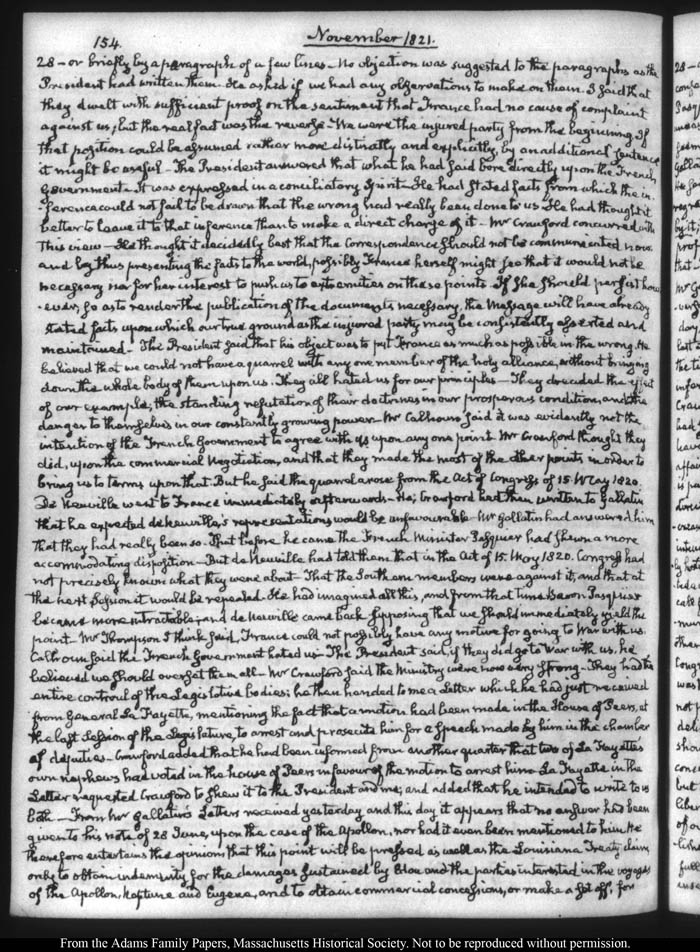 154.
November 1821.
28 - or briefly by a paragraph of a few lines - No objection was suggested to the paragraphs as the
President had written them. He asked if we had any observations to make on them. I said that
they dwelt with sufficient proof on the sentiment that France had no cause of complaint
against us; but the real fact was the reverse - We were the injured party from the beginning. If
that position could be assumed rather more distinctly and explicitly, by an additional sentence
it might be useful - The President answered that what he had said bore directly upon the French
Government - It was expressed in a conciliatory spirit - He had stated facts from which the in-
ference could not fail to be drawn that the wrong had really been done to us. He had thought it
better to leave it to that inference than to make a direct charge of it - Mr Crawford concurred with
this view - He thought it decidedly best that the Correspondence should not be communicated now.
and by thus presenting the facts to the world, possibly France herself might see that it would not be
necessary nor for her interest to push us to extremities on these points - If she should persist how-
-ever, so as to render the publication of the documents necessary, the Message will have already
stated facts upon which our true ground as the injured party may be consistently asserted and
maintained - The President said that his object was to put France as much as possible in the wrong. He
believed that we could not have a quarrel with any one member of the holy alliance, without bringing
down the whole body of them upon us. They all hated us for our principles - They dreaded the effect
of our example; the standing refutation of their doctrines in our prosperous condition, and the
danger to themselves in our constantly growing power - Mr Calhoun said it was evidently not the
intention of the French Government to agree with us upon any one point. Mr Crawford thought they
did, upon the commercial Negotiation, and that they made the most of the other points in order to
bring us to terms upon that. But he said the quarrel arose from the Act of Congress of 15 May 1820.
De Neuville went to France immediately afterwards - He, Crawford had then written to Gallatin
that he expected de Neuville's representations would be unfavourable - Mr Gallatin had answered him
that they had really been so. That before he came the French Minister Pasquier had shewn a more
accommodating disposition - But de Neuville had told them that in the Act of 15. May 1820. Congress had
not precisely known what they were about - That the Southern members were against it, and that at
the next Session it would be repealed. He had imagined all this, and from that time Baron Pasquier
became more intractable; and de Neuville came back supposing that we should immediately yield the
point. Mr Thompson I think said, France could not possibly have any motive for going to War with us.
Calhoun said the French Government hated us - The President said, if they did go to War with us, he
believed we should overset them all - Mr Crawford said the Ministry were now very strong - They had the
entire controul of the Legislative bodies; he then handed to me a Letter which he had just received
from General La Fayette, mentioning the fact that a motion had been made in the House of Peers, at
the last Session of the Legislature, to arrest and prosecute him for a speech made by him in the chamber
of deputies - Crawford added that he had been informed from another quarter that two of La Fayette's
own nephews had voted in the house of Peers in favour of the motion to arrest him - La Fayette in the
Letter requested Crawford to shew it to the President and me; and added that he intended to write to us
both - From Mr Gallatin's Letters received yesterday and this day it appears that no answer had been
given to his note of 28 June, upon the case of the Apollon, nor had it even been mentioned to him. He
therefore entertains the opinion that this point will be pressed as well as the Louisiana Treaty claim,
only to obtain indemnity for the damages sustained by and the parties interested in the voyages
of the Apollon, Neptune and Eugene, and to obtain commercial concessions, or make a set off, for
From the Adams Family Papers, Massachusetts Historical Society. Not to be reproduced without permission.